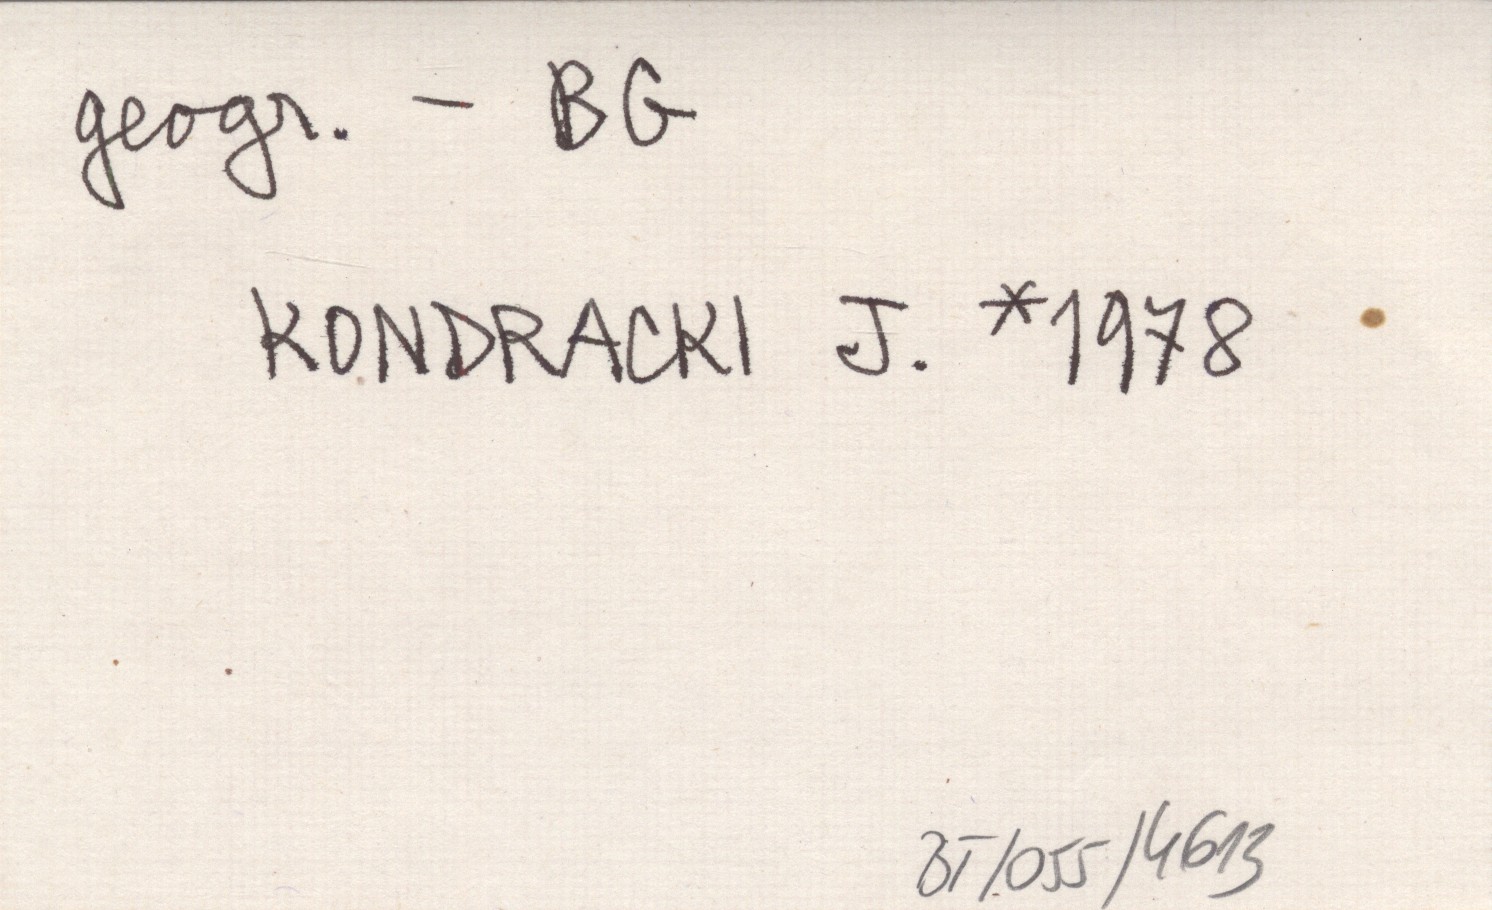 geogr. - BG
KONDRACKI J. *1978
BT/055/4613